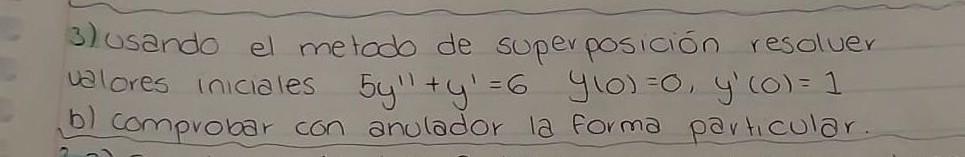 3) usando el metodo de superposición resolver
valores iniciales 5y'' + y' = 6 y(0) = 0, y'(0) = 1
b) comprobar con anulador la forma particular.